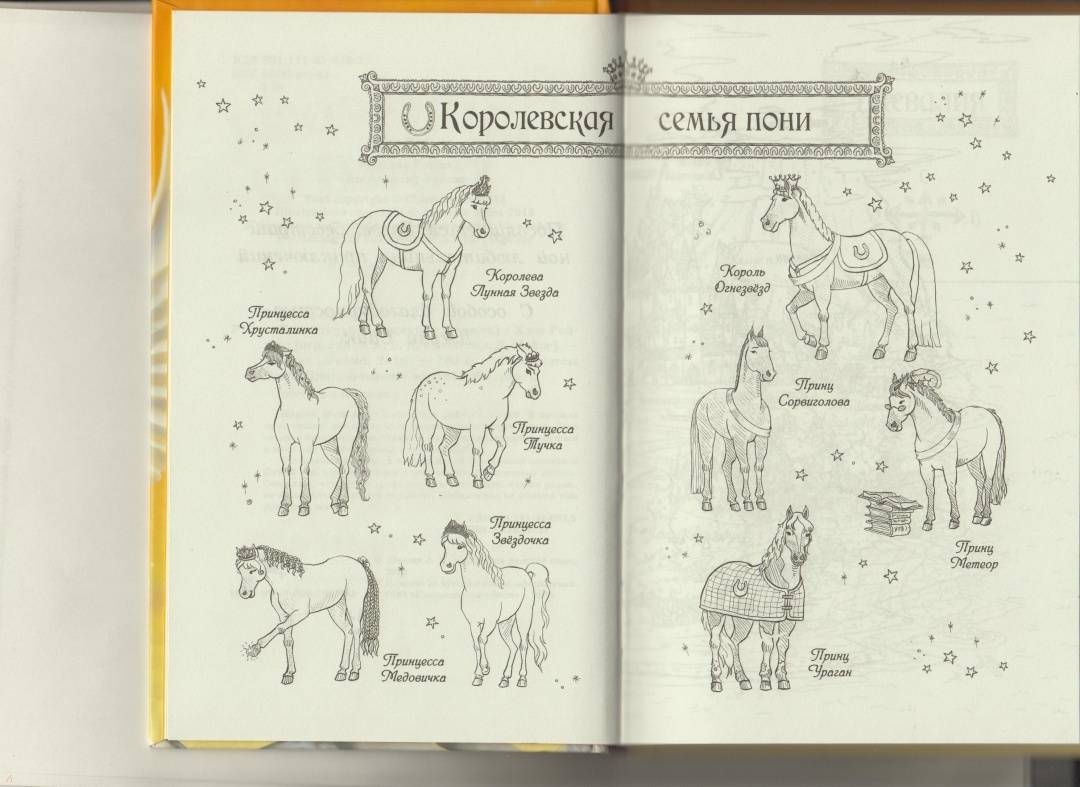 Королевская семья пони
Королева
Лунная Звезда
Принцесса
Хрусталинка
Принцесса
Тучка
Принцесса
Звёздочка
Принцесса
Медовичка
Король
Огнезвёзд
Принц
Сорвиголова
Принц
Метеор
Принц
Ураган